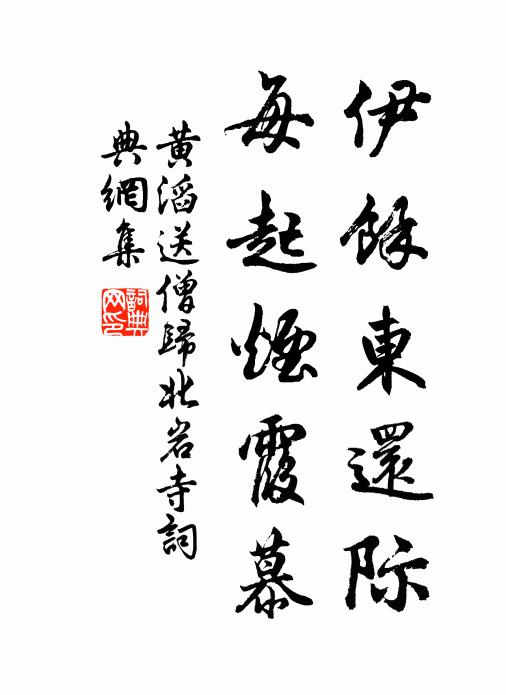 伊餘東還際
每起煙霞慕
黄滔送僧歸北岩寺詞
典網集
詞典
网印